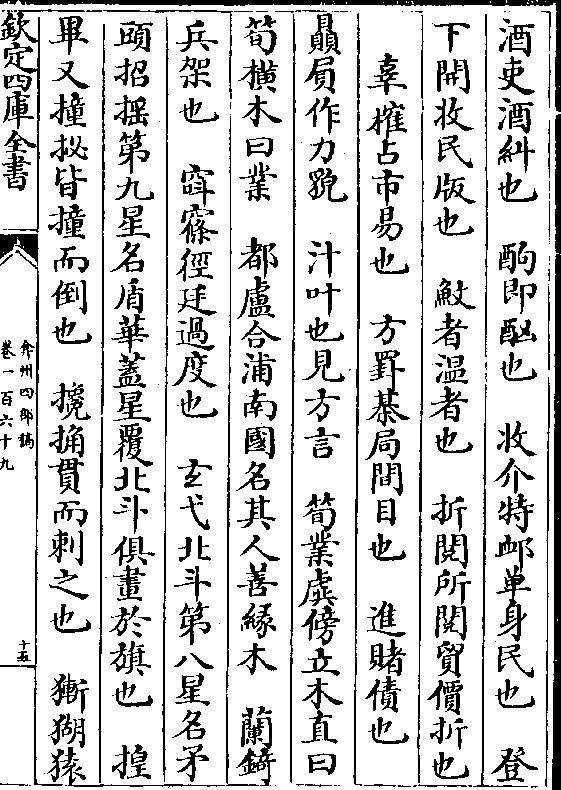 酒吏酒糾也　酌即酗也　收介特䘏单身民也　登
下開收民版也　䰻者温者也　折閱所閱貿價折也
辜㩁占市易也　方罫棊局間目也　進賭債也
贔屓作力貌　汁叶也見方言　筍業虡傍立木直曰
筍横木曰業　都盧合浦南國名其人善緣木　蘭錡
兵架也　𥥍寥徑廷過度也　玄弋北斗第八星名矛
頭招摇第九星名盾華蓋星覆北斗俱畫於旗也　揘
畢又撞㧙皆撞而倒也　攙捔貫而刺之也　獑猢猿
欽定四庫全書
弇州四部稿
卷一百六十九
十五